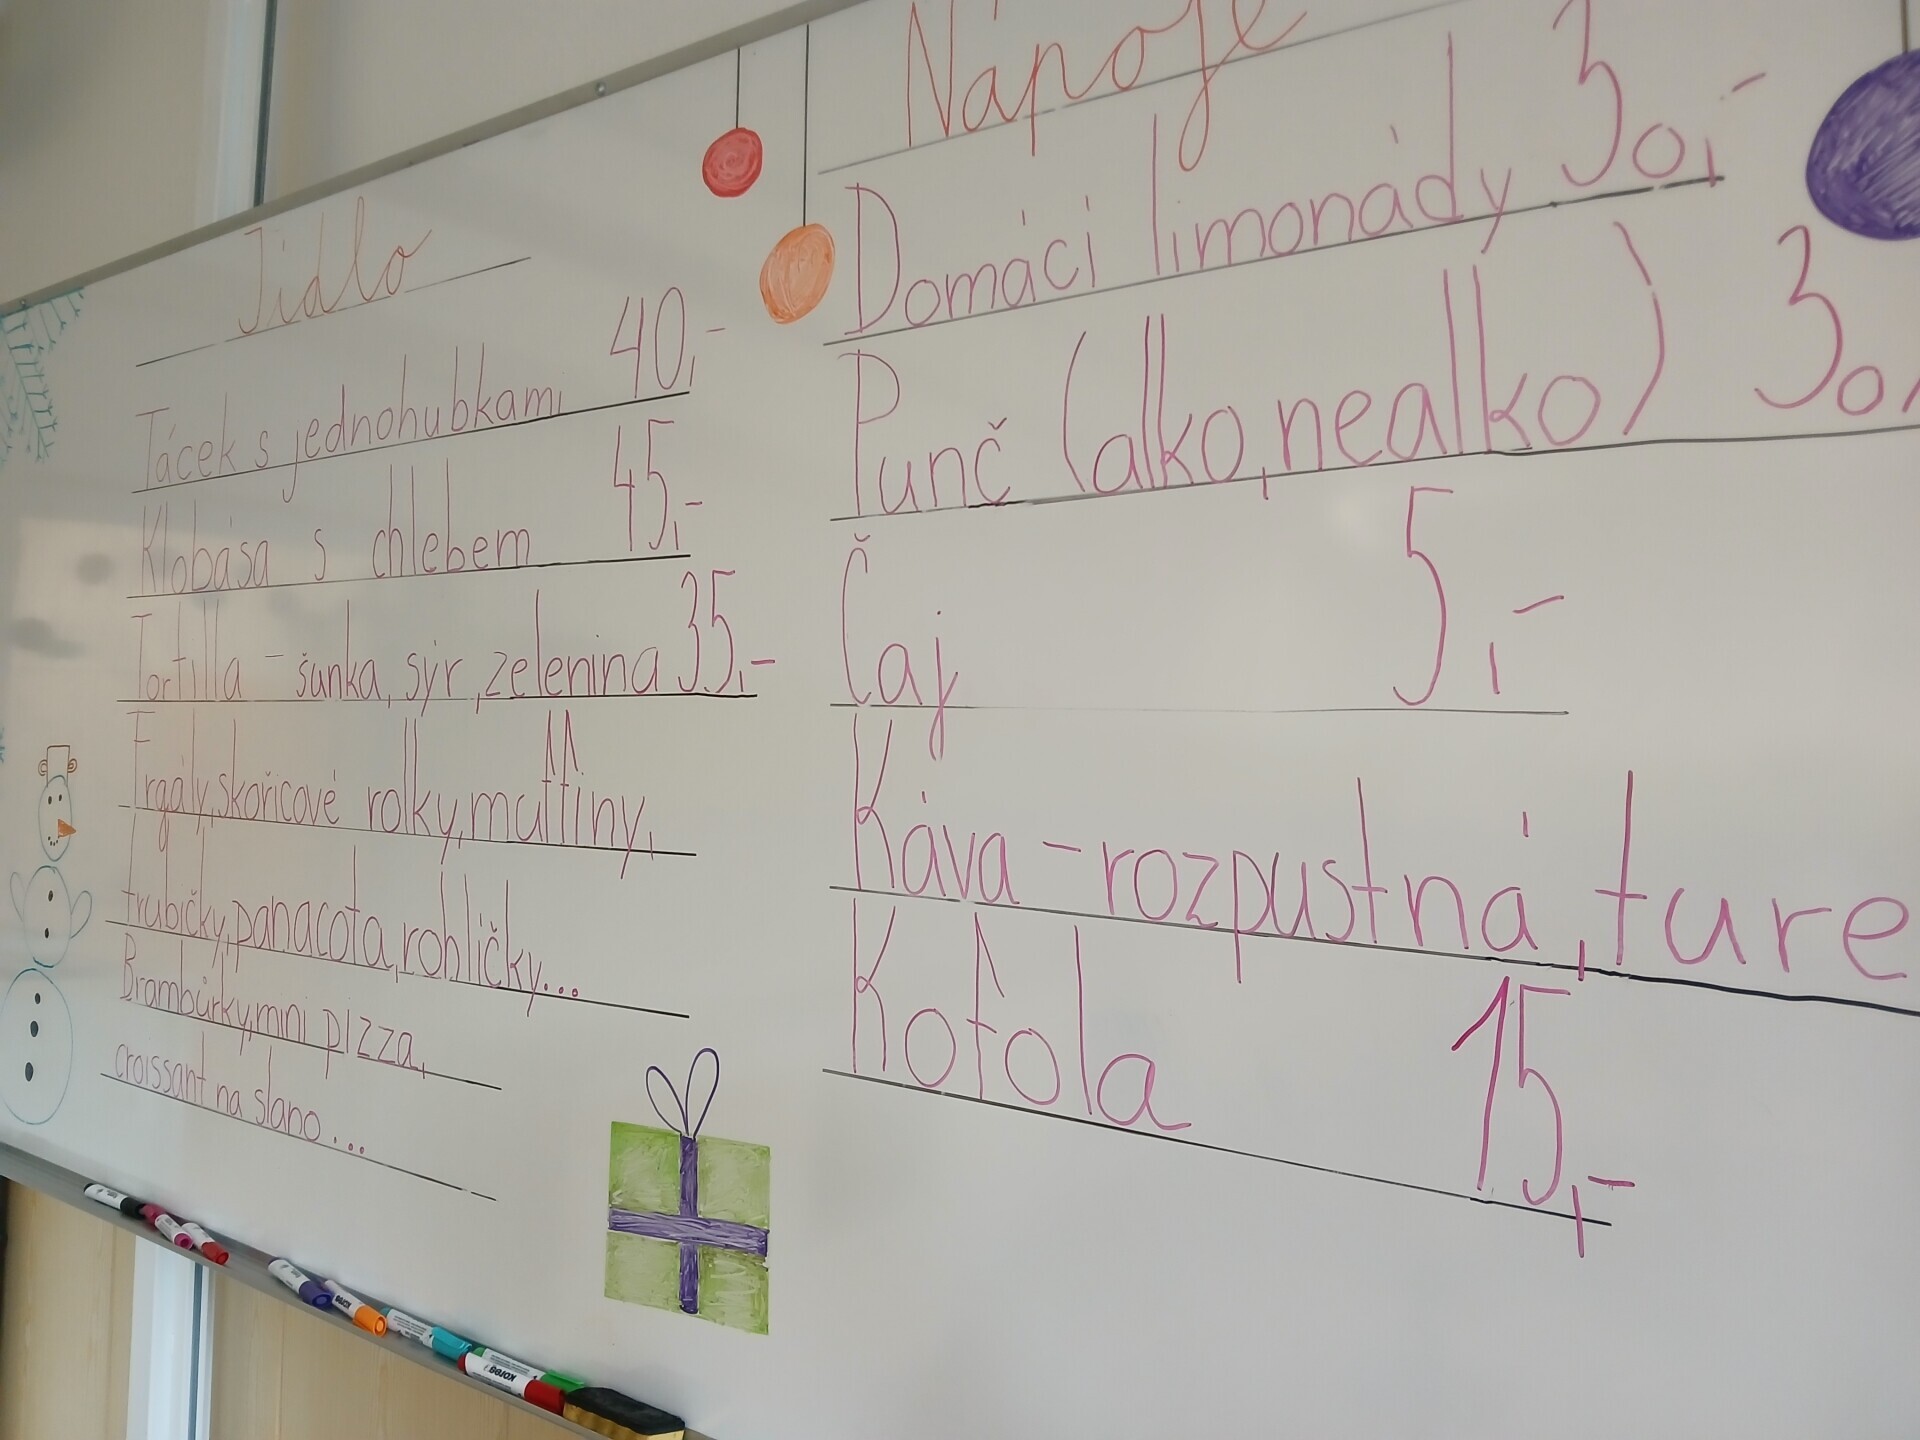 Jídlo
Tácek s jednohubkami 40,-
Klobása s chlebem 45,-
Tortilla - šunka, sýr, zelenina 35,-
Frgály, skořicové rolky, muffiny,
trubičky, panacota, rohlíčky...
Brambůrky, mini pizza,
croissant na slano...
Nápoje
Domácí limonády 30,-
Punč (alko, nealko) 30,
Čaj 5,-
Káva - rozpustná, ture
Kofola 15,-
KORES
KORES